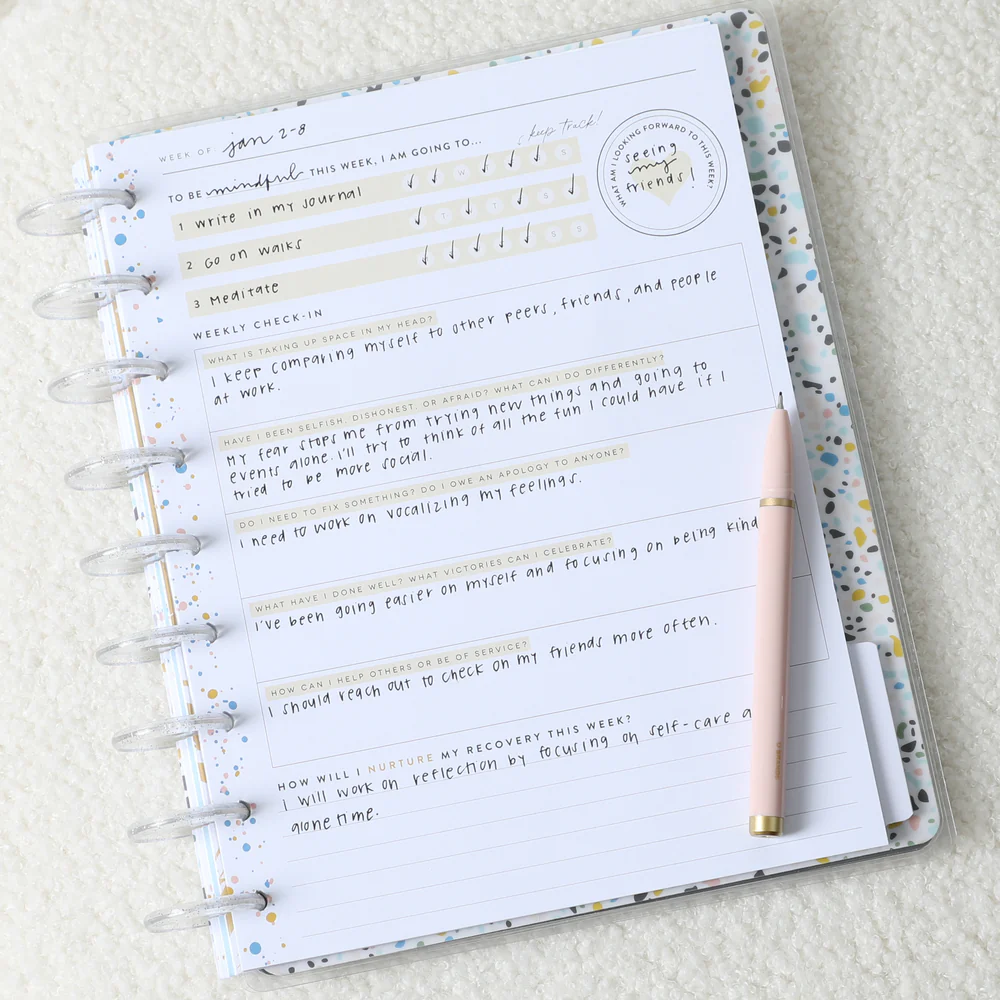 WEEK OF: jan 2-8
keep track!
TO BE mindful THIS WEEK, I AM GOING TO...
1 write in my journal W S
2 Go on walks T T S
3 Meditate S S
WHAT AM I LOOKING FORWARD TO THIS WEEK?
seeing
my
friends!
WEEKLY CHECK-IN
WHAT IS TAKING UP SPACE IN MY HEAD?
I keep comparing myself to other peers, friends, and people
at work.
HAVE I BEEN SELFISH, DISHONEST, OR AFRAID? WHAT CAN I DO DIFFERENTLY?
My fear stops me from trying new things and going to
events alone. I'll try to think of all the fun I could have if I
tried to be more social.
DO I NEED TO FIX SOMETHING? DO I OWE AN APOLOGY TO ANYONE?
I need to work on vocalizing my feelings.
WHAT HAVE I DONE WELL? WHAT VICTORIES CAN I CELEBRATE?
I've been going easier on myself and focusing on being kind
HOW CAN I HELP OTHERS OR BE OF SERVICE?
I should reach out to check on my friends more often.
HOW WILL I NURTURE MY RECOVERY THIS WEEK?
I will work on reflection by focusing on self-care a
alone time.